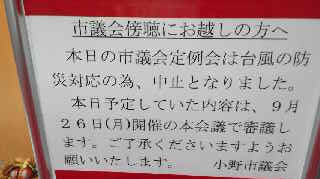 市議会傍聴にお越しの方へ
本日の市議会定例会は台風の防
災対応の為、中止となりました。
本日予定していた内容は、９月
２６日(月)開催の本会議で審議し
ます。ご了承くださいますようお
願いいたします。 小野市議会